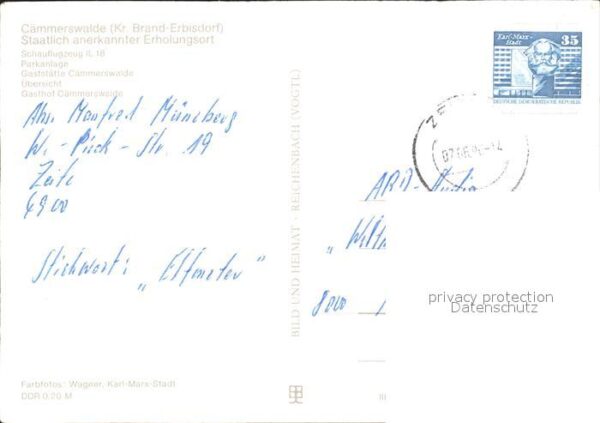 Cämmerswalde (Kr. Brand-Erbisdorf)
Staatlich anerkannter Erholungsort
Schauflugzeug IL 18
Parkanlage
Gaststätte Cämmerswalde
Übersicht
Gasthof Cämmerswalde
Abs. Manfred Müneberg
W.-Pieck-Str. 19
Zeitz
4900
Stichwort: „Elfmeter"
BILD UND HEIMAT · REICHENBACH (VOGTL)
Karl-Marx-Stadt
35
DEUTSCHE DEMOKRATISCHE REPUBLIK
ARD-
8000
privacy protection
Datenschutz
Farbfotos: Wagner, Karl-Marx-Stadt
DDR 0,20 M